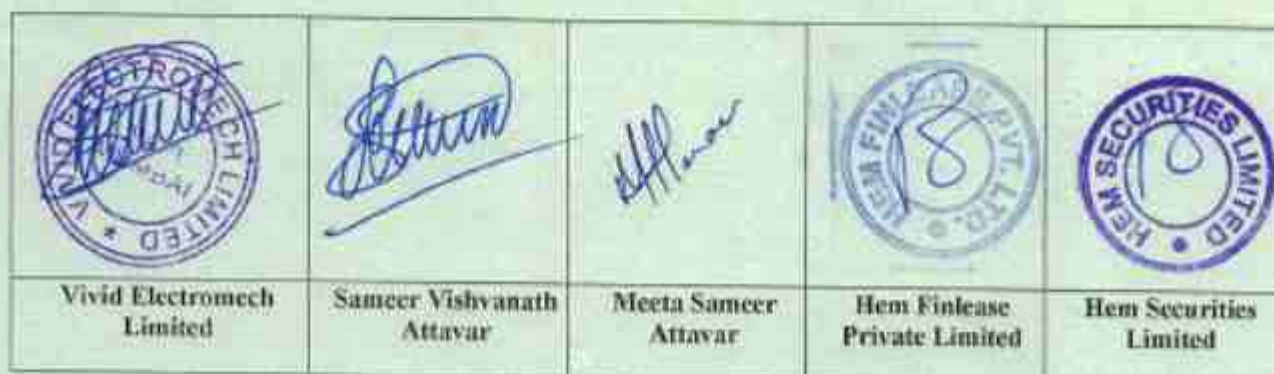 VIVID ELECTROMECH LIMITED *
HEM SECURITIES LIMITED
Vivid Electromech
Limited
Sameer Vishvanath
Attavar
Meeta Sameer
Attavar
Hem Finlease
Private Limited
Hem Securities
Limited